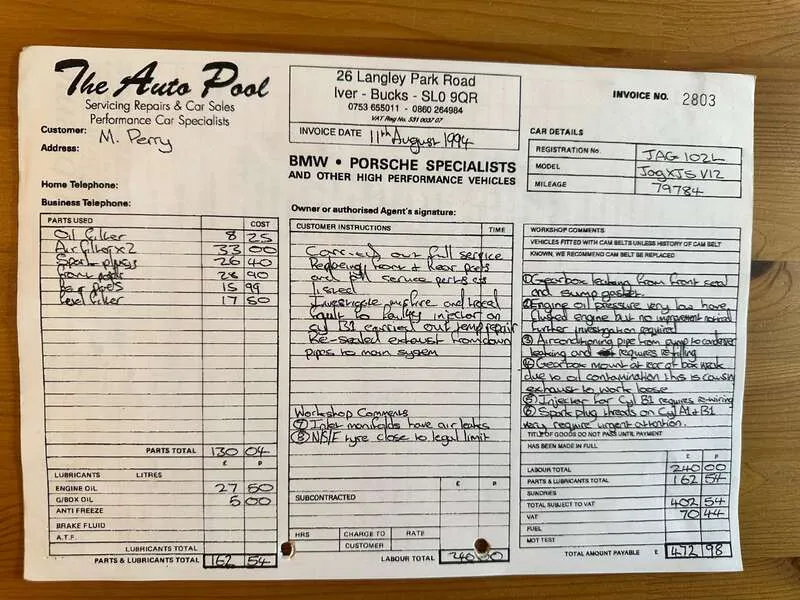 The Auto Pool
Servicing Repairs & Car Sales
Performance Car Specialists
Customer: M. Perry
Address:
Home Telephone:
Business Telephone:
26 Langley Park Road
Iver - Bucks - SL0 9QR
0753 655011 - 0860 264984
VAT Reg No. 531 0037 07
INVOICE DATE 11th August 1994
BMW • PORSCHE SPECIALISTS
AND OTHER HIGH PERFORMANCE VEHICLES
Owner or authorised Agent's signature:
INVOICE NO. 2803
CAR DETAILS
REGISTRATION No. JAG 102L
MODEL Jag XJS V12
MILEAGE 79784
PARTS USED COST
Oil filter 8 25
Air filter x2 33 00
Spark plugs 26 40
front pads 28 90
Rear pads 15 99
fuel filter 17 50
PARTS TOTAL 130 04
£ P
LUBRICANTS LITRES
ENGINE OIL 27 50
G/BOX OIL 5 00
ANTI FREEZE
BRAKE FLUID
A.T.F.
LUBRICANTS TOTAL
PARTS & LUBRICANTS TOTAL 162 54
CUSTOMER INSTRUCTIONS TIME
Carried out full service
Replacing front & Rear pads
and all service parts as
listed
Investigate misfire and traced
fault to faulty injector on
cyl B1 carried out temp repair
Re-sealed exhaust from down
pipes to main system
Workshop Comments
⑦ Inlet manifolds have air leaks
⑧ N/S/F tyre close to legal limit
£ P
SUBCONTRACTED
HRS CHARGE TO RATE
CUSTOMER
LABOUR TOTAL 240 00
WORKSHOP COMMENTS
VEHICLES FITTED WITH CAM BELTS UNLESS HISTORY OF CAM BELT
KNOWN, WE RECOMMEND CAM BELT BE REPLACED
① Gearbox leaking from front seal
and sump gasket.
② Engine oil pressure very low have
flushed engine but no improvement noticed
further investigation required
③ Airconditioning pipe from pump to condenser
leaking and requires refilling
④ Gearbox mount at rear of box weak
due to oil contamination this is causing
exhaust to work loose
⑤ Injector for Cyl B1 requires re-wiring
⑥ Spark plug threads on Cyl A1 + B1
very require urgent attention.
TITLE OF GOODS DO NOT PASS UNTIL PAYMENT
HAS BEEN MADE IN FULL
£ P
LABOUR TOTAL 240 00
PARTS & LUBRICANTS TOTAL 162 54
SUNDRIES
TOTAL SUBJECT TO VAT 402 54
VAT 70 44
FUEL
MOT TEST
TOTAL AMOUNT PAYABLE £ 472 98